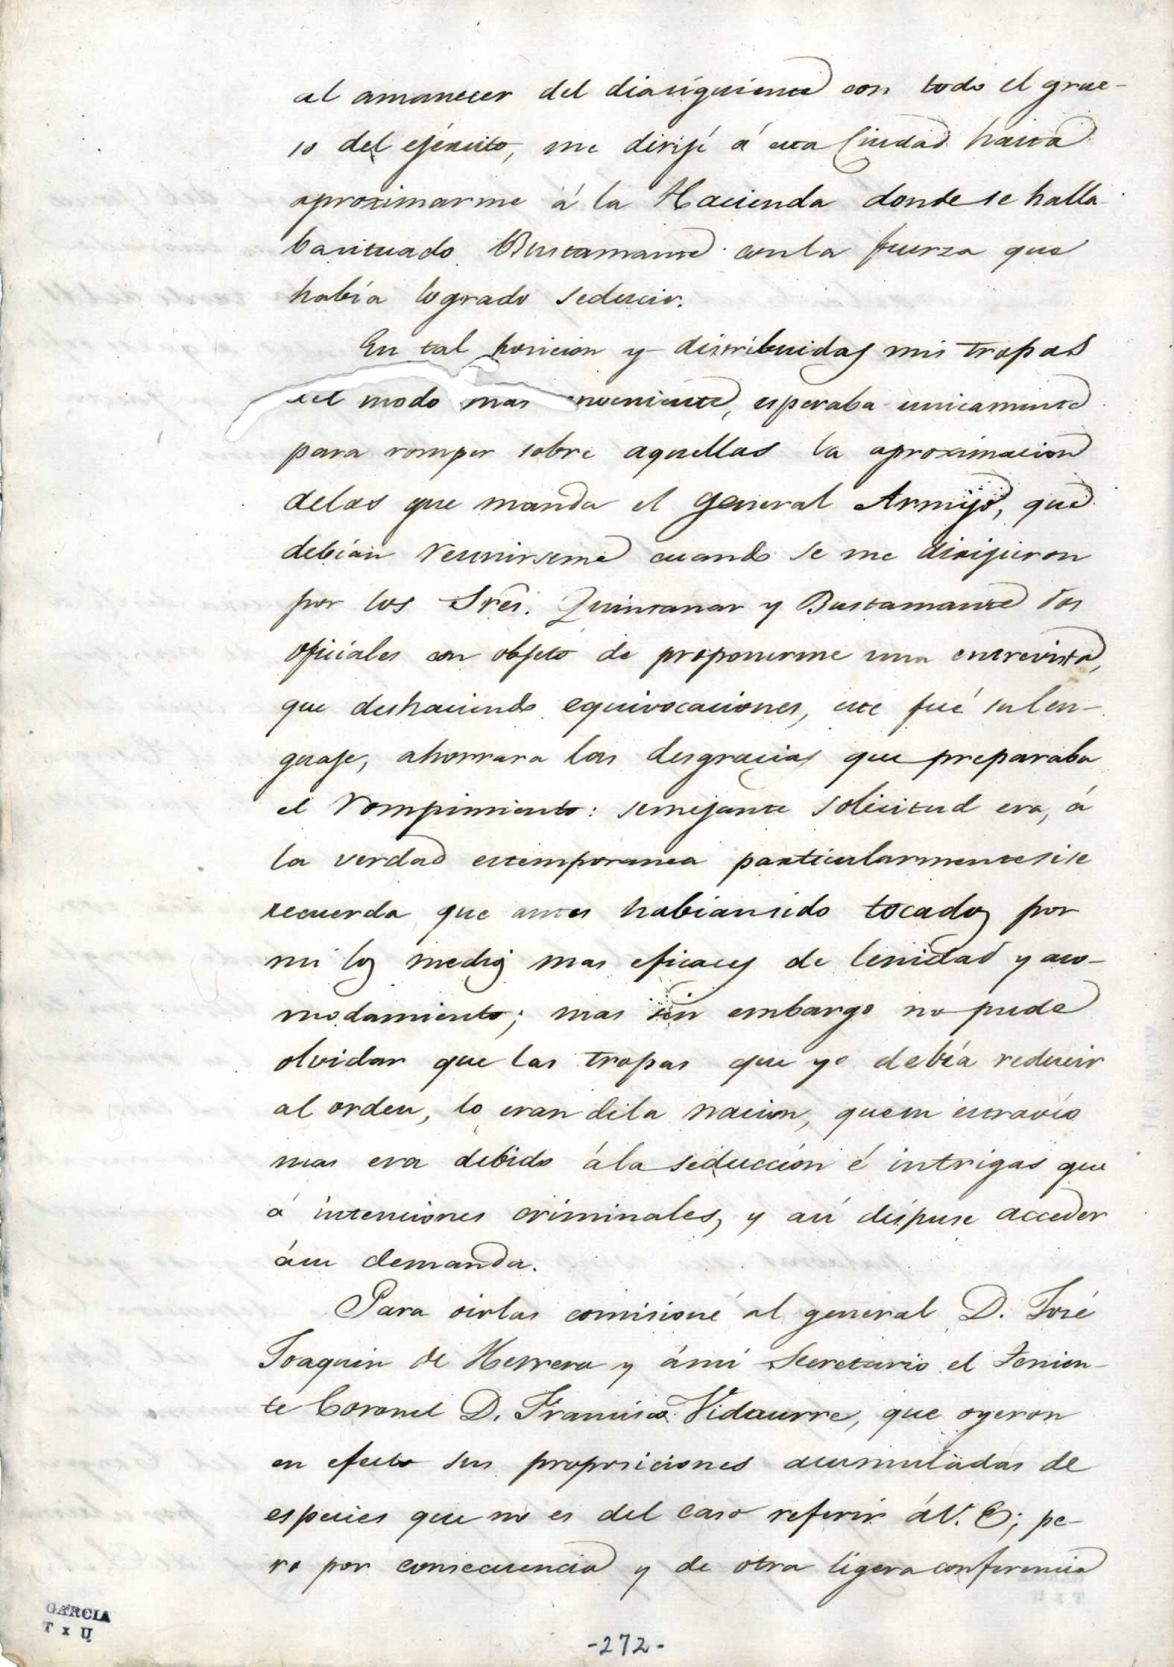 al amanecer del dia siguiente con todo el grue-
so del ejército, me dirijí á esta Ciudad hasta
aproximarme á la Hacienda donde se halla
ba situado Bustamante con la fuerza que
había logrado seducir.
En tal posicion y distribuidas mis tropas
del modo mas conveniente, esperaba unicamente
para romper sobre aquellas la aproximacion
de las que manda el general Armijo, que
debían reunirseme cuando se me dirijieron
por los Sres. Quintanar y Bustamante dos
oficiales con objeto de proponerme una entrevista,
que deshaciendo equivocaciones, este fué su len-
guaje, ahorrara las desgracias que preparaba
el rompimiento: semejante solicitud era, á
la verdad estemporanea particularmente si se
recuerda que antes habian sido tocados por
mi los medios mas eficaces de lenidad y aco-
modamiento; mas sin embargo no pude
olvidar que las tropas que yo debía reducir
al orden, lo eran de la nacion, que su estravío
mas era debido á la seducción é intrigas que
á intenciones criminales, y así dispuse acceder
á su demanda.
Para oirlas comisioné al general D. José
Joaquin de Herrera y á mi Secretario el Tenien-
te Coronel D. Francisco Vidaurre, que oyeron
en efecto sus proposiciones acumuladas de
especies que no es del caso referir á V. E; pe-
ro por consecuencia y de otra ligera conferencia
GARCIA
-272-